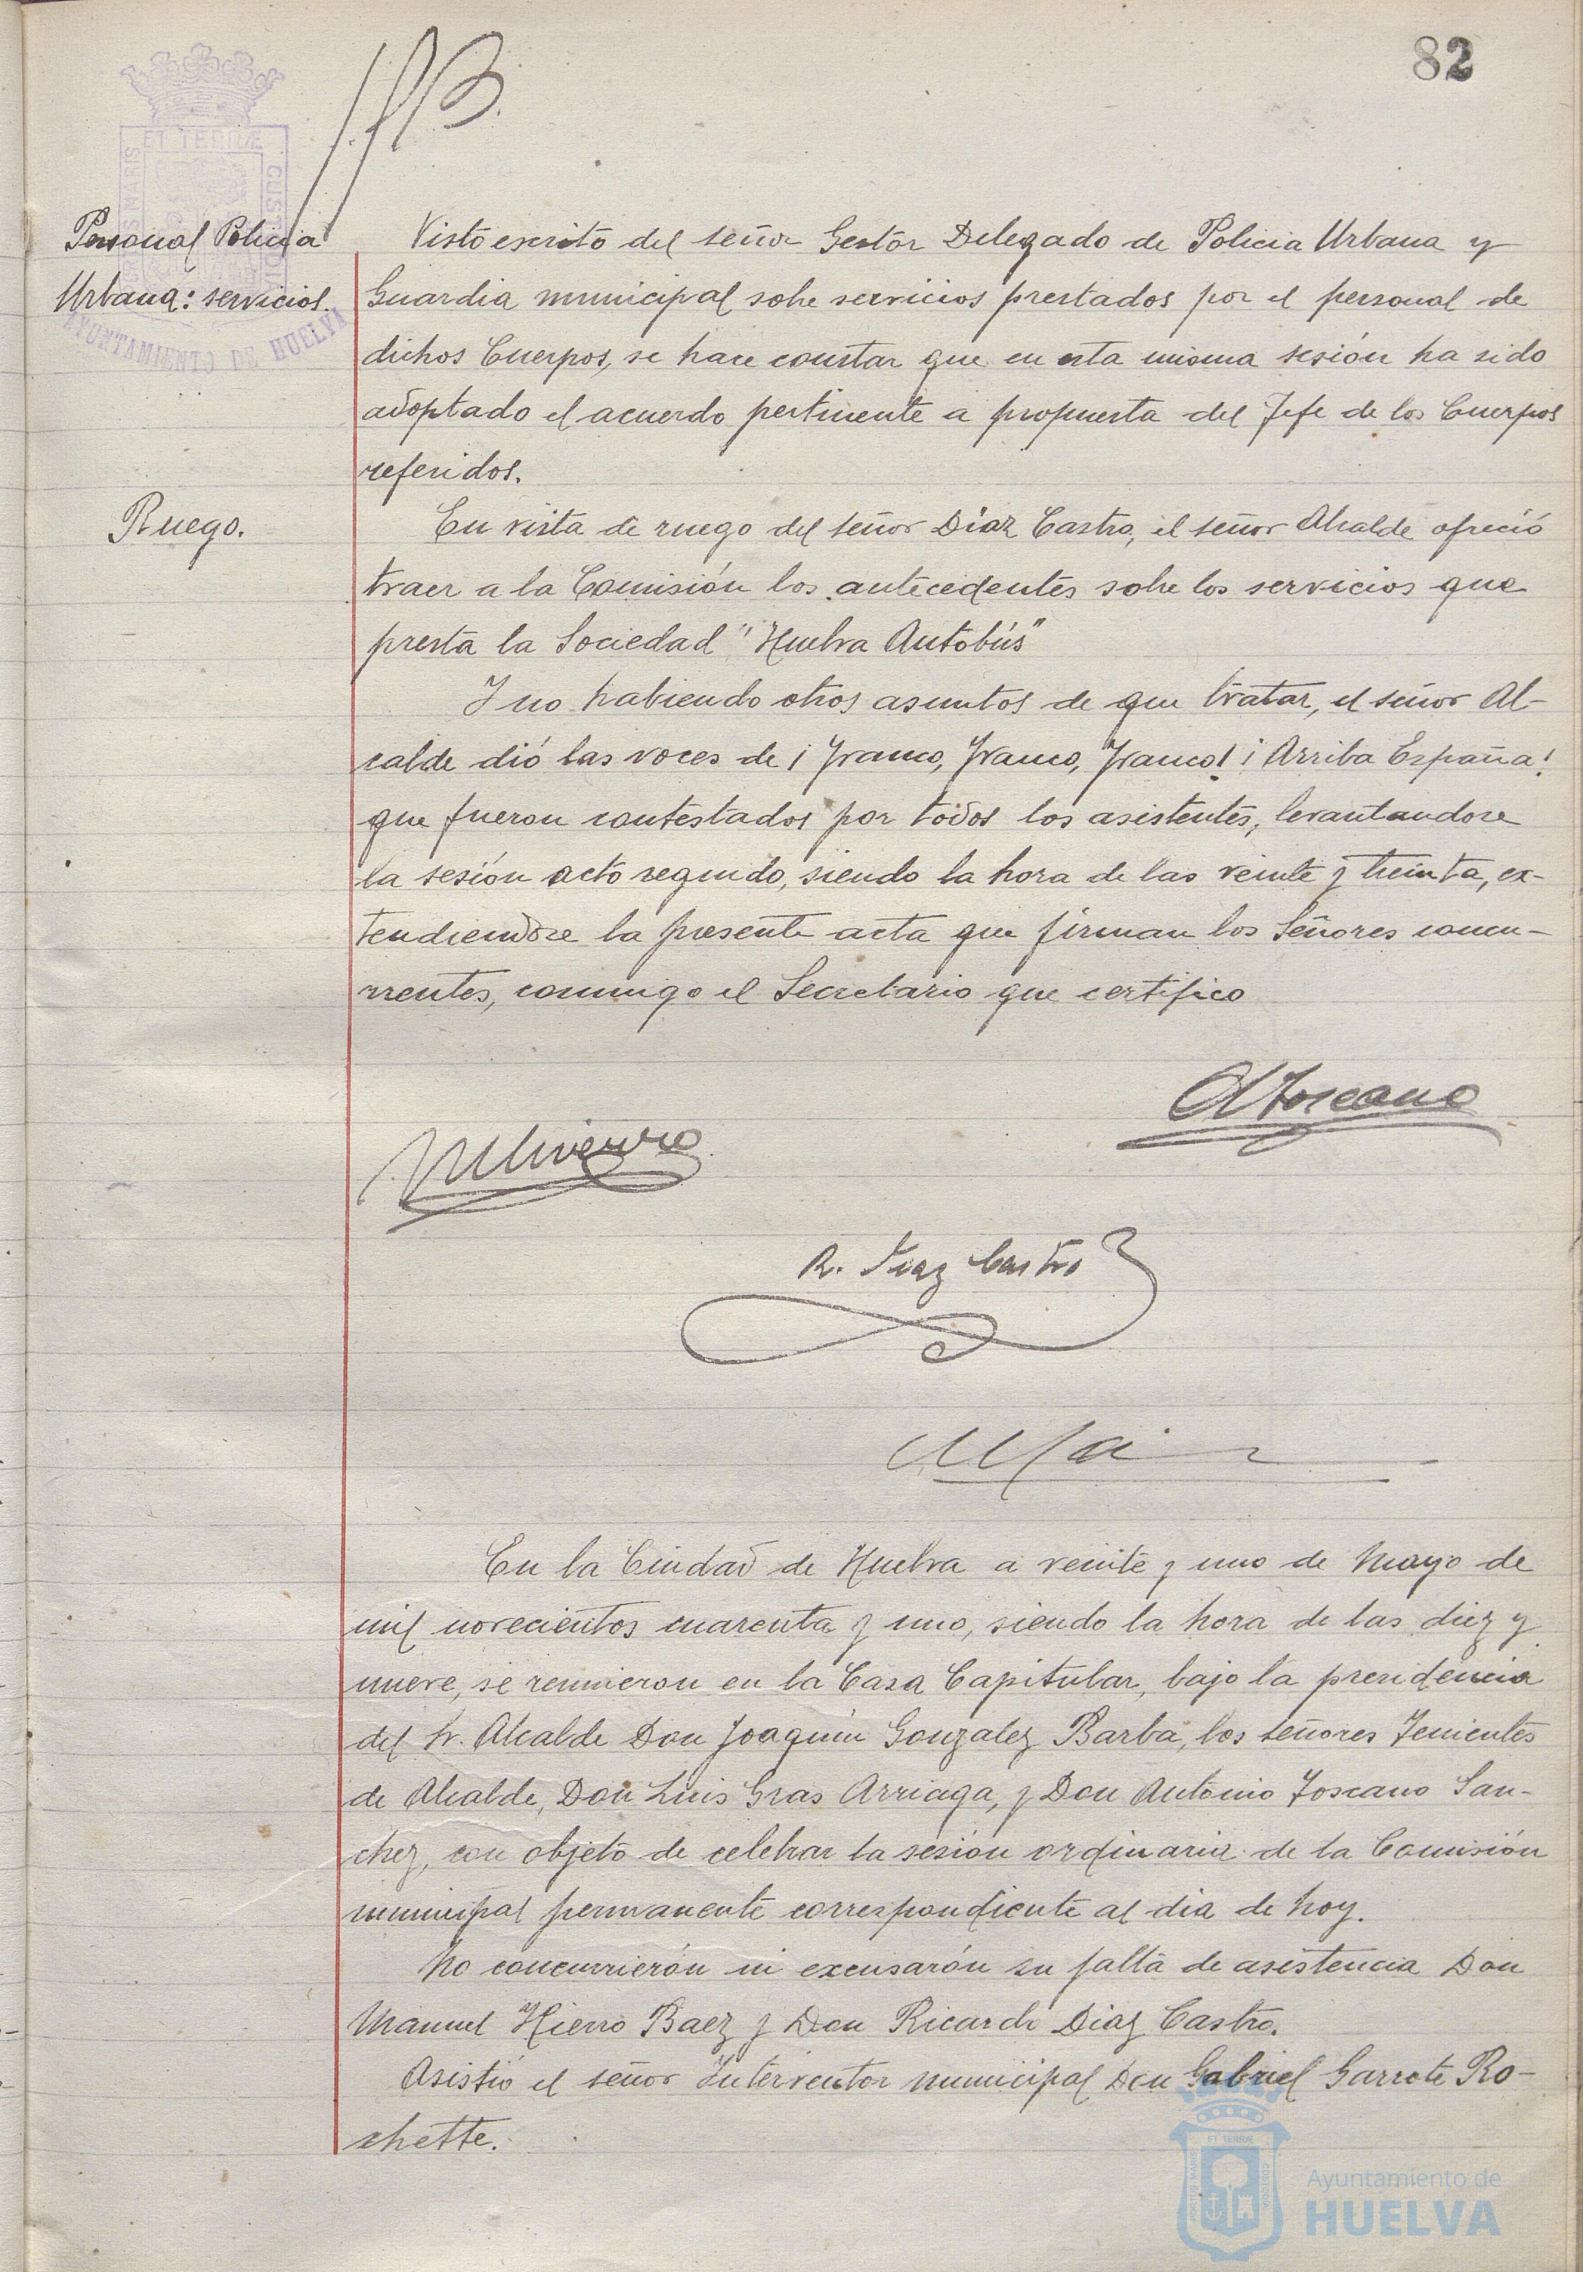 82
Personal Policia
Urbana: servicios.
Visto escrito del señor Gestor Delegado de Policia Urbana y
Guardia municipal sobre servicios prestados por el personal de
dichos Cuerpos, se hace constar que en esta misma sesión ha sido
adoptado el acuerdo pertinente a propuesta del Jefe de los Cuerpos
referidos.
Ruego.
En vista de ruego del señor Díaz Castro, el señor Alcalde ofreció
traer a la Comisión los antecedentes sobre los servicios que
presta la Sociedad "Huelva Autobús"
Y no habiendo otros asuntos de que tratar, el señor Al-
calde dió las voces de ¡Franco, Franco, Franco! ¡Arriba España!
que fueron contestados por todos los asistentes, levantandose
la sesión acto seguido, siendo la hora de las veinte y treinta, ex-
tendiendose la presente acta que firman los Señores concu-
rrentes, conmigo el Secretario que certifico
A Toscano
R. Diaz Castro
En la Ciudad de Huelva a veinte y uno de Mayo de
mil novecientos cuarenta y uno, siendo la hora de las diez y
nueve, se reunieron en la Casa Capitular, bajo la presidencia
del Sr. Alcalde Don Joaquín Gonzalez Barba, los señores Tenientes
de Alcalde, Don Luis Gras Arriaga, y Don Antonio Toscano San-
chez, con objeto de celebrar la sesión ordinaria de la Comisión
municipal permanente correspondiente al dia de hoy.
No concurrierón ni excusarón su falta de asistencia Don
Manuel Hierro Baez y Don Ricardo Diaz Castro.
Asistió el señor Interventor municipal Don Gabriel Garrote Ro-
chette.
ET TERRÆ
MARIS
AYUNTAMIENTO DE HUELVA
Ayuntamiento de
HUELVA